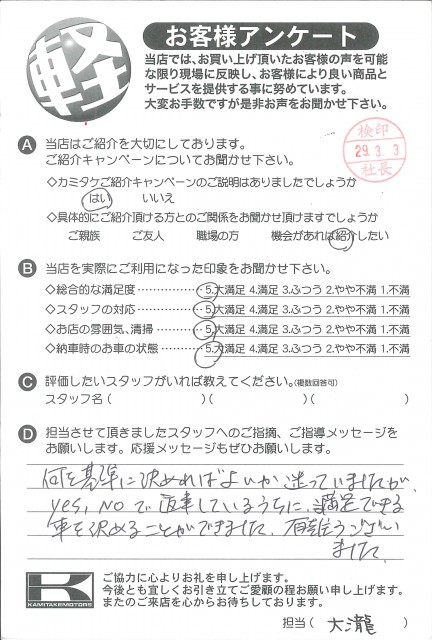 軽
お客様アンケート
当店では、お買い上げ頂いたお客様の声を可能
な限り現場に反映し、お客様により良い商品と
サービスを提供する事に努めています。
大変お手数ですが是非お声をお聞かせ下さい。
検印
29.3.3
社長
A 当店はご紹介を大切にしております。
ご紹介キャンペーンについてお聞かせ下さい。
◇カミタケご紹介キャンペーンのご説明はありましたでしょうか
はい いいえ
◇具体的にご紹介頂ける方とのご関係をお聞かせ頂けますでしょうか
ご親族 ご友人 職場の方 機会があれば紹介したい
B 当店を実際にご利用になった印象をお聞かせ下さい。
◇総合的な満足度……………5.大満足 4.満足 3.ふつう 2.やや不満 1.不満
◇スタッフの対応……………5.大満足 4.満足 3.ふつう 2.やや不満 1.不満
◇お店の雰囲気、清掃………5.大満足 4.満足 3.ふつう 2.やや不満 1.不満
◇納車時のお車の状態………5.大満足 4.満足 3.ふつう 2.やや不満 1.不満
C 評価したいスタッフがいれば教えてください。(複数回答可)
スタッフ名( )( )( )
D 担当させて頂きましたスタッフへのご指摘、ご指導メッセージを
お願いします。応援メッセージもぜひお願いします。
何を基準に決めればよいか迷っていましたが、
yes, NOで返事しているうちに、満足できる
車を決めることができました。有難うござい
ました。
K
KAMITAKEMOTORS
ご協力に心よりお礼を申し上げます。
今後とも宜しくお引き立てご愛顧の程お願い申し上げます。
またのご来店を心からお待ちしております。
担当( 大瀧 )